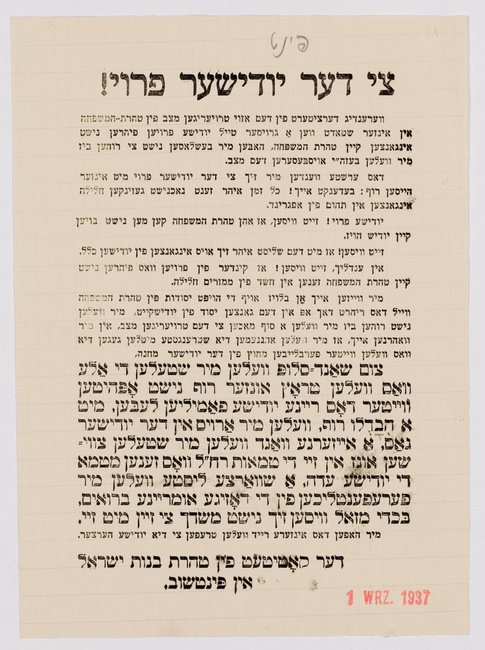 פינט
צי דער יודישער פרוי!
ווערענדיג דערציטערט פין דעם אזוי טרויעריגען מצב פין טהרת-המשפחה
אין אינזער שטאדט ווען אַ גרויסער טייל יודישע פרויען פיהרען נישט
אינגאנצען קיין טהרת המשפחה, האבען מיר בעשלאסען נישט צי רוהען ביז
מיר וועלען בעזה״י אויסבעסערען דעם מצב.
דאס ערשטע ווענדען מיר זיך צי דער יודישער פרוי מיט אינזער
הייסען רוף: בעדענקט אייך! כל זמן איהר זענט נאכנישט געזינקען חלילה
אינגאנצען אין תהום פין אפגרינד.
יודישע פרוי! זייט וויסען, אז אהן טהרת המשפחה קען מען נישט בויען
קיין יודיש הויז.
זייט וויסען! אז מיט דעם שליסט איהר זיך אויס אינגאנצען פין יודישען כלל.
אין ענדליך, זייט וויסען! אז קינדער פין פרויען וואס פיהרען נישט
קיין טהרת המשפחה זענען אין חשד פין ממזרים חלילה.
מיר ווייזען אייך אָן בלויז אויף די הויפט יסודות פין טהרת המשפחה
ווייל דאס ריהרט דאך אפ אין דעם גאנצען יסוד פין יודישקייט, מיר וועלען
נישט רוהען ביז מיר וועלען א סוף מאכען צי דעם טרויעריגען מצב, אין מיר
ווארהנען אייך, אז מיר וועלען אהננעמען דיא שטרענגסטע מיטלען געגען דיא
וואס וועלען ווייטער פערבלייבען מחוץ פין דער יודישער מחנה.
צום שאַנד-סלופ וועלען מיר שטעלען די אַלע
וואָס וועלען טראָץ אונזער רוף נישט אָפּהיטען
ווייטער דאָס ריינע יודישע פאַמיליען לעבּען, מיט
אַ הבדלו רוף, וועלען מיר אַרויס אין דער יודישער
גאַס, אַ אייזערנע וואַנד וועלען מיר שטעלען צווי-
שען אונז אין זיי די טמאות רח״ל וואָס זענען מטמא
די יודישע עדה, אַ שוואַרצע ליסטע וועלען מיר
פערעפענטליכען פין די דאָזיגע אומריינע ברואים,
בּכדי מזאל וויסען זיך נישט משדך צי זיין מיט זיי.
מיר האפען דאס אינזערע רייד וועלען טרעפען צי דיא יודישע הערצער.
דער קאָמיטעט פין טהרת בנות ישראל
אין פּינטשוב.
1 WRZ. 1937